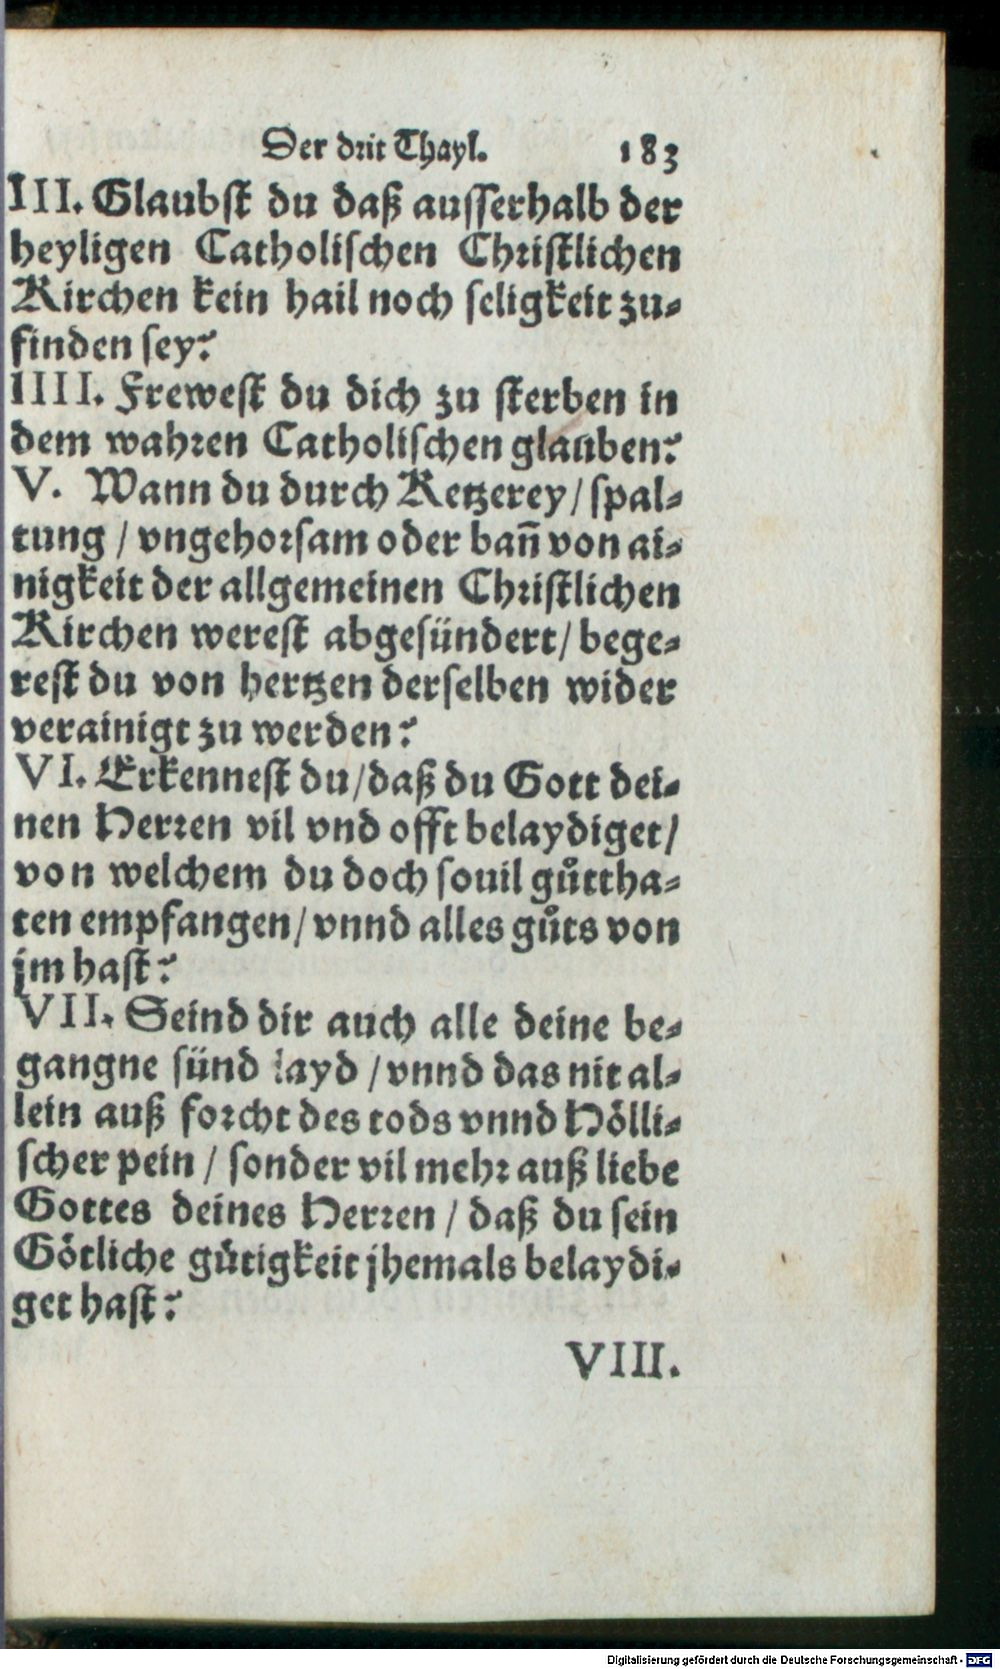 Der drit Thayl. 183
III. Glaubst du daß ausserhalb der
heyligen Catholischen Christlichen
Kirchen kein hail noch seligkeit zu-
finden sey?
IIII. Frewest du dich zu sterben in
dem wahren Catholischen glauben?
V. Wann du durch Ketzerey / spal-
tung / vngehorsam oder bañ von ai-
nigkeit der allgemeinen Christlichen
Kirchen werest abgesündert / bege-
rest du von hertzen derselben wider
verainigt zu werden?
VI. Erkennest du / daß du Gott dei-
nen Herren vil vnd offt belaydiget /
von welchem du doch souil gůttha-
ten empfangen / vnnd alles gůts von
jm hast?
VII. Seind dir auch alle deine be-
gangne sünd layd / vnnd das nit al-
lein auß forcht des tods vnnd Hölli-
scher pein / sonder vil mehr auß liebe
Gottes deines Herren / daß du sein
Götliche gütigkeit jhemals belaydi-
get hast?
VIII.
Digitalisierung gefördert durch die Deutsche Forschungsgemeinschaft - DFG